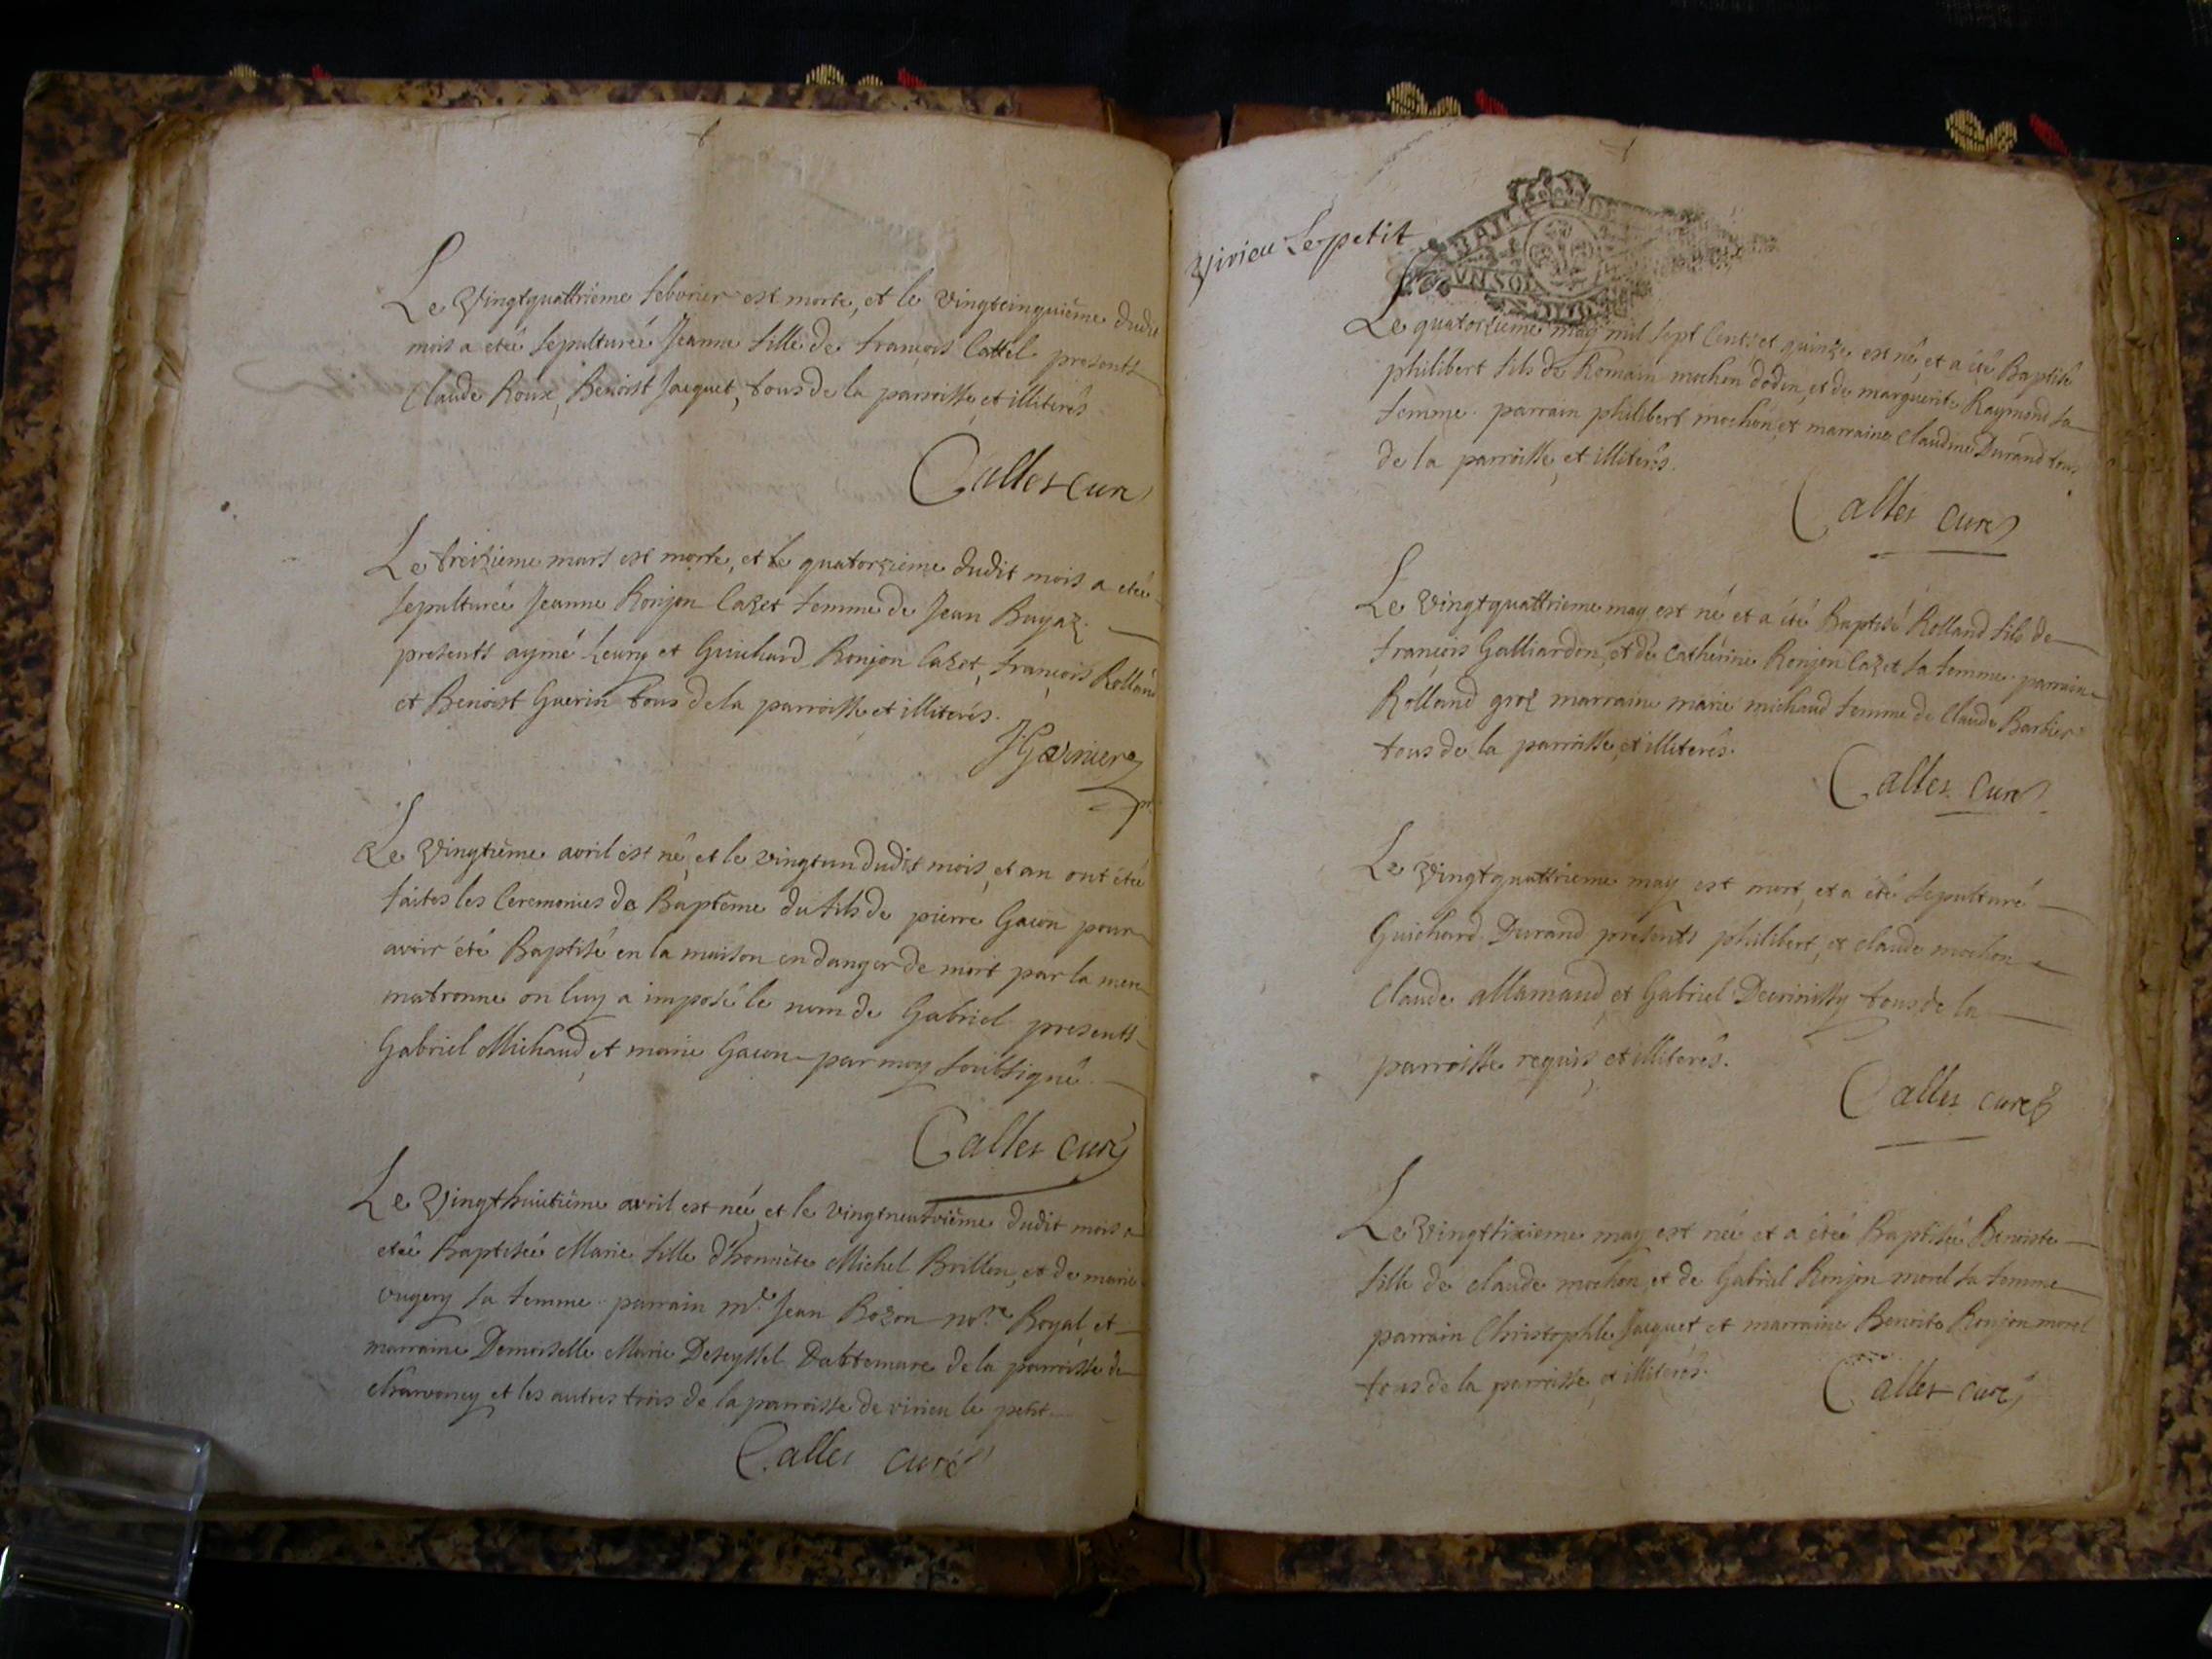 Le Vingtquattrième febvrier est morte, et le vingtcinquième dudit
mois a etéé sepulturéé Jeanne fille de françois Cattel presents
Claude Roux, Benoist Jacquet, tous de la parroisse et illiterés
Calles curé
Le treizieme mars est morte, et le quatorzieme dudit mois a etéé
sepulturéé Jeanne Ronjon Cazet femme de Jean Bugaz
presents aymé fleury et Guichard Ronjon Cazet, françois Rolland
et Benoist Guerin tous de la parroisse et illiterés.
Garnier
Le Vingtième avril est né, et le vingtun dudit mois, et an ont été
faites les Ceremonies de Baptême du fils de pierre Gacon pour
avoir été Baptisé en la maison en danger de mort par la mere
matronne on luy a imposé le nom de Gabriel presents
Gabriel Michaud, et marie Gacon par moy soubsigné.
Calles curé
Le Vingthuictième avril est néé et le vingtneufvième dudit mois a
etéé Baptiséé Marie fille d'honnête Michel Brillon, et de marie
vugery sa femme parrain me. Jean Bozon nore. Royal, et
marraine Demoiselle Marie Deseyssel Dartemare de la parroisse de
charvoney et les autres trois de la parroisse de virieu le petit
Calles curé
Virieu Le petit
UN SOL
Le quatorzieme may mil sept cents et quinze est né, et a été Baptisé
philibert fils de Romain mochon dodin, et de marguerite Raymond sa
femme. parrain philibert mochon, et marraine Claudine Durand tous
de la parroisse, et illiterés.
Calles curé
Le Vingtquattrieme may est né et a été Baptisé Rolland fils de
françois Galliardon, et de Catherine Ronjon Cazet sa femme. parrain
Rolland groz marraine marie michaud femme de Claude Barbier
tous de la parroisse, et illiterés.
Calles curé
Le Vingtquattrieme may est mort, et a été sepulturé
Guichard Durand presents philibert, et claude mochon
Claude allamand, et Gabriel tous de la
parroisse requis, et illiterés.
Calles curé
Le Vingtsixieme may est néé et a étéé Baptiséé Benoiste
fille de claude mochon, et de Gabriel Ronjon morel sa femme
parrain Christophle Jacquet et marraine Benoite Ronjon morel
tous de la parroisse, et illiterés.
Calles curé